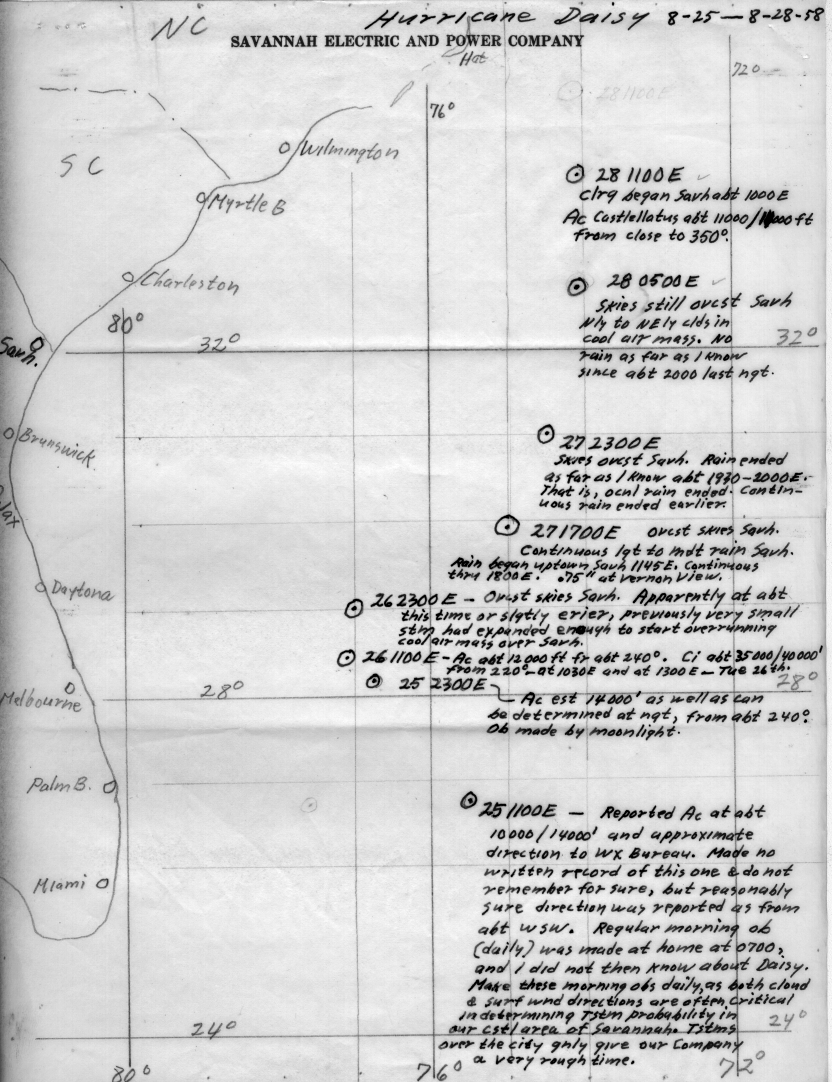 NC
Hurricane Daisy 8-25 — 8-28-58
SAVANNAH ELECTRIC AND POWER COMPANY
Hat
72°
76°
281100E
Wilmington
SC
Myrtle B
28 1100E
Clrg began Savh abt 1000E
Ac Castlellatus abt 11000/11000 ft
from close to 350°.
Charleston
28 0500E
Skies still ovcst Savh
Nly to NEly clds in
cool air mass. No
rain as far as I know
since abt 2000 last ngt.
80°
Savh.
32°
32°
Brunswick
27 2300E
Skies ovcst Savh. Rain ended
as far as I know abt 1930-2000E.
That is, ocnl rain ended. Contin-
uous rain ended earlier.
Jax
271700E ovcst skies Savh.
Continuous lgt to mdt rain Savh.
Rain began uptown Savh 1145E. Continuous
thru 1800E. .75" at Vernon View.
Daytona
26 2300E - Ovcst skies Savh. Apparently at abt
this time or slgtly erler, previously very small
stm had expanded enough to start overrunning
cool air mass over Savh.
26 1100E - Ac abt 12000 ft fr abt 240°. Ci abt 35000/40000'
from 220°-at 1030E and at 1300E - Tue 26th.
Melbourne
28°
28°
25 2300E
— Ac est 14000' as well as can
be determined at ngt, from abt 240°.
Ob made by moonlight.
Palm B.
251100E — Reported Ac at abt
10000/14000' and approximate
direction to Wx Bureau. Made no
written record of this one & do not
remember for sure, but reasonably
sure direction was reported as from
abt WSW. Regular morning ob
(daily) was made at home at 0700,
and I did not then know about Daisy.
Make these morning obs daily, as both cloud
& surf wnd directions are often critical
in determining Tstm probability in
our cstl area of Savannah. Tstms
over the city gnly give our Company
a very rough time.
Miami
24°
24°
80°
76°
72°